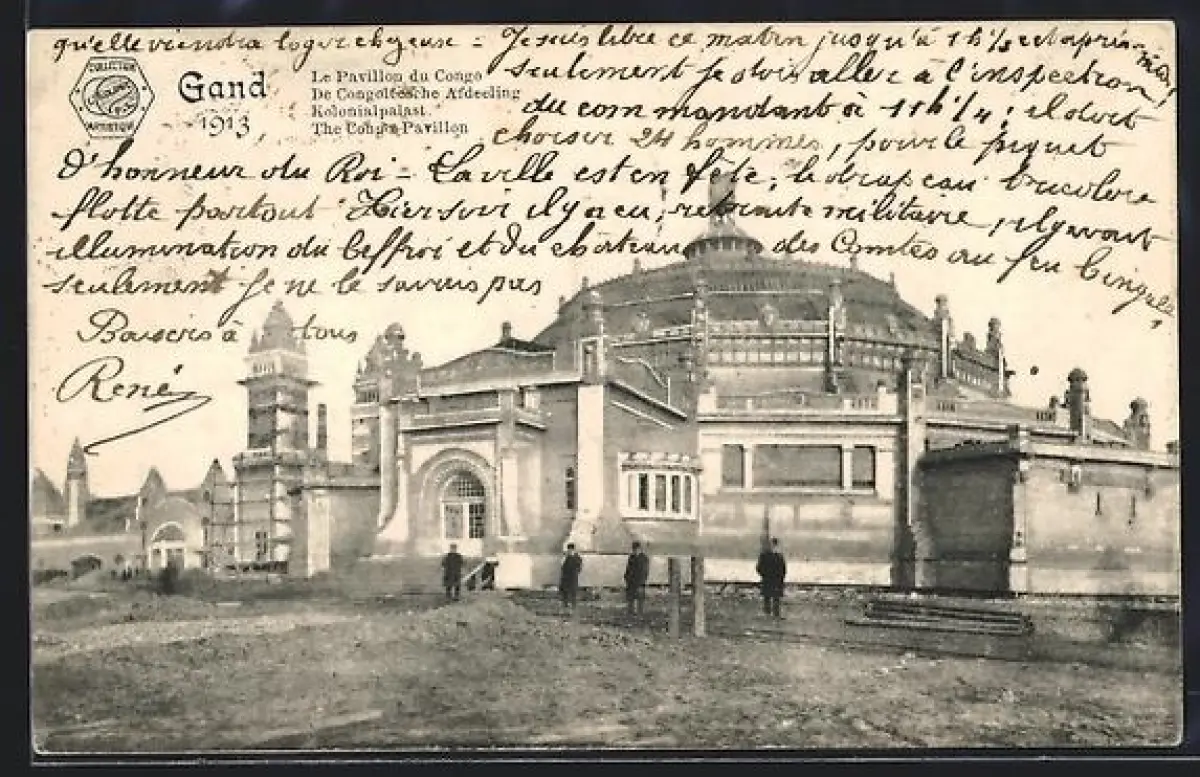 qu'elle viendra loger chez eux = Je suis libre ce matin jusqu'à 11 h ½ et après-midi
seulement je dois aller à l'inspection
du commandant à 11 h ¼; il doit
choisir 24 hommes, pour le piquet
d'honneur du Roi - La ville est en fête, le drapeau tricolore
flotte partout Hier soir il y a eu, retraite militaire, il y avait
illumination du beffroi et du château des Comtes au feu
seulement je ne le savais pas
Baisers à tous
René
COLLECTION
ARTISTIQUE
Gand
1913
Le Pavillon du Congo
De Congoleesche Afdeeling
Kolonialpalast.
The Congo-Pavillon